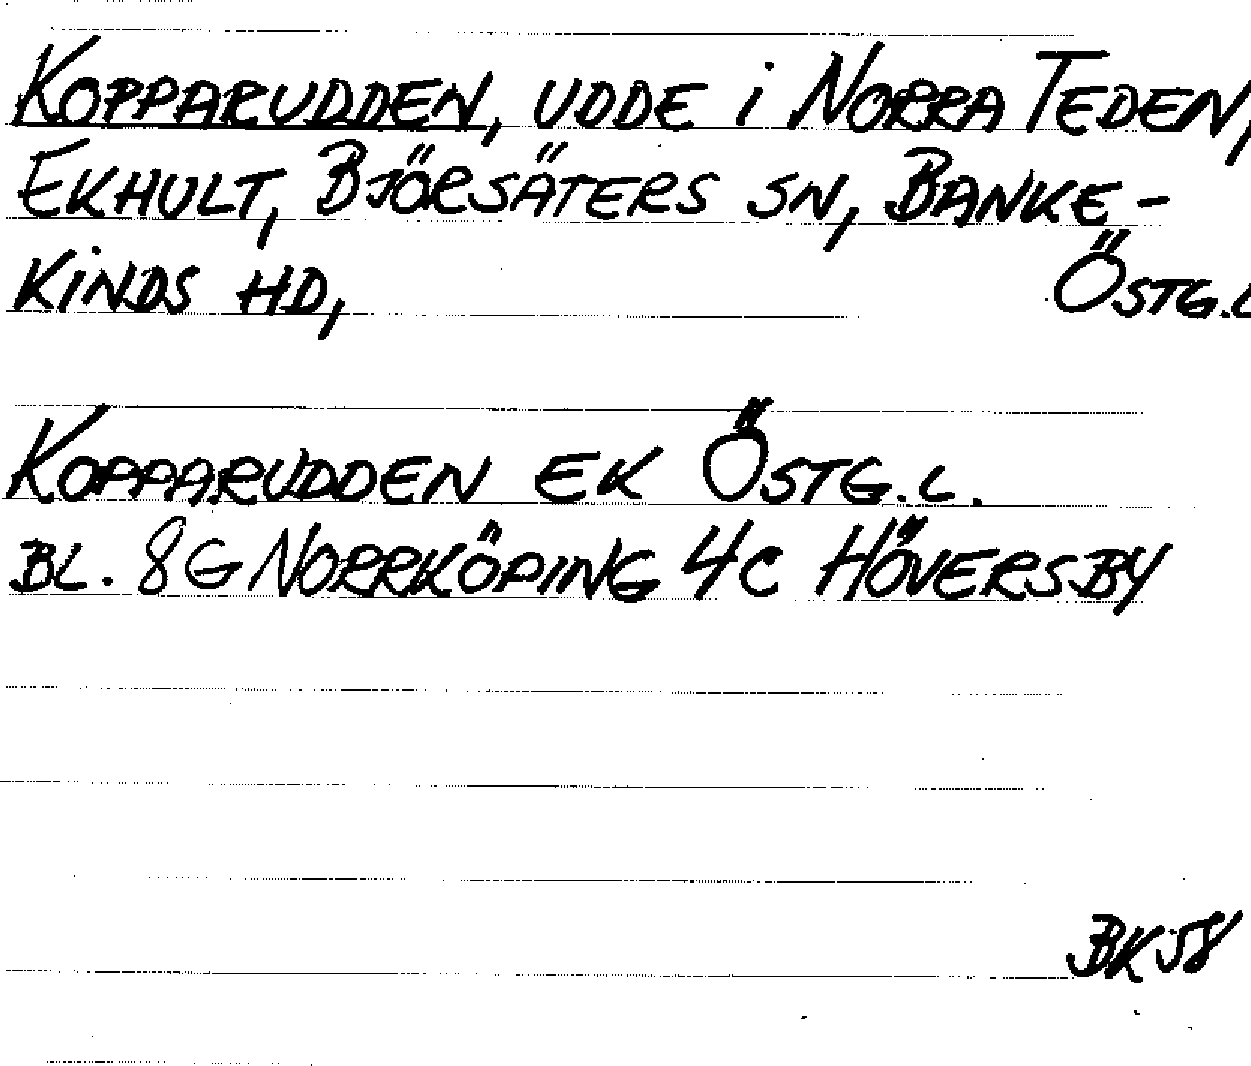 KOPPARUDDEN, UDDE i NORRA TEDEN,
EKHULT, BJÖRSÄTERS SN, BANKE-
KINDS HD, ÖSTG.L
KOPPARUDDEN EK ÖSTG.L.
BL. 8G NORRKÖPING 4C HÖVERSBY
BK58